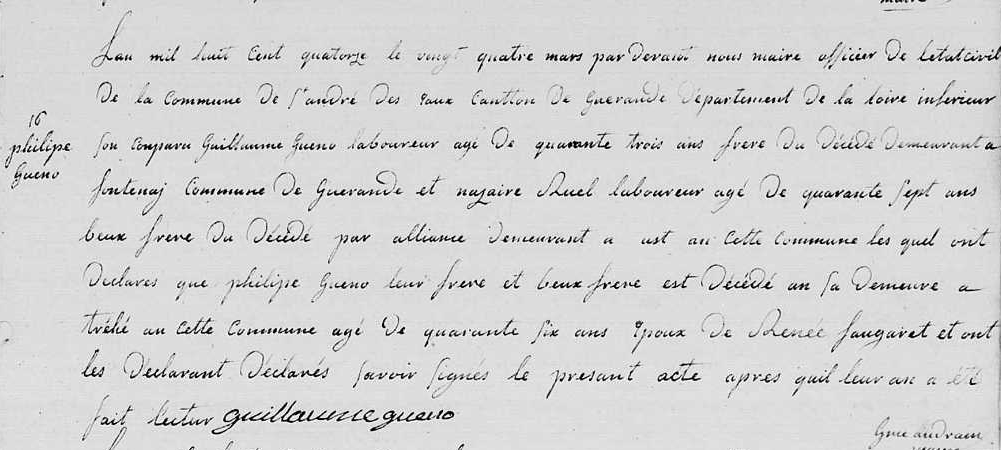 maire
Lan mil huit cent quatorze le vingt quatre mars par devant nous maire officier de letat civil
de la commune de St andré des Eaux cantton de Guerande département de la loire inferieur
16
philipe
Gueno
son conparu Guillaume Gueno laboureur agé de quarante trois ans frere du décédé demeurant a
fontenaj commune de Guerande et nazaire Ruel laboureur agé de quarante sept ans
beux frere du décédé par alliance demeurant a ust an cette commune les quel ont
declares que philipe Gueno leur frere et beux frere est décédé an sa demeure a
tréhé an cette commune agé de quarante six ans Epoux de Renée faugaret et ont
les déclarant déclarés savoir signés le presant acte apres quil leur an a été
fait lectur guillaume gueno